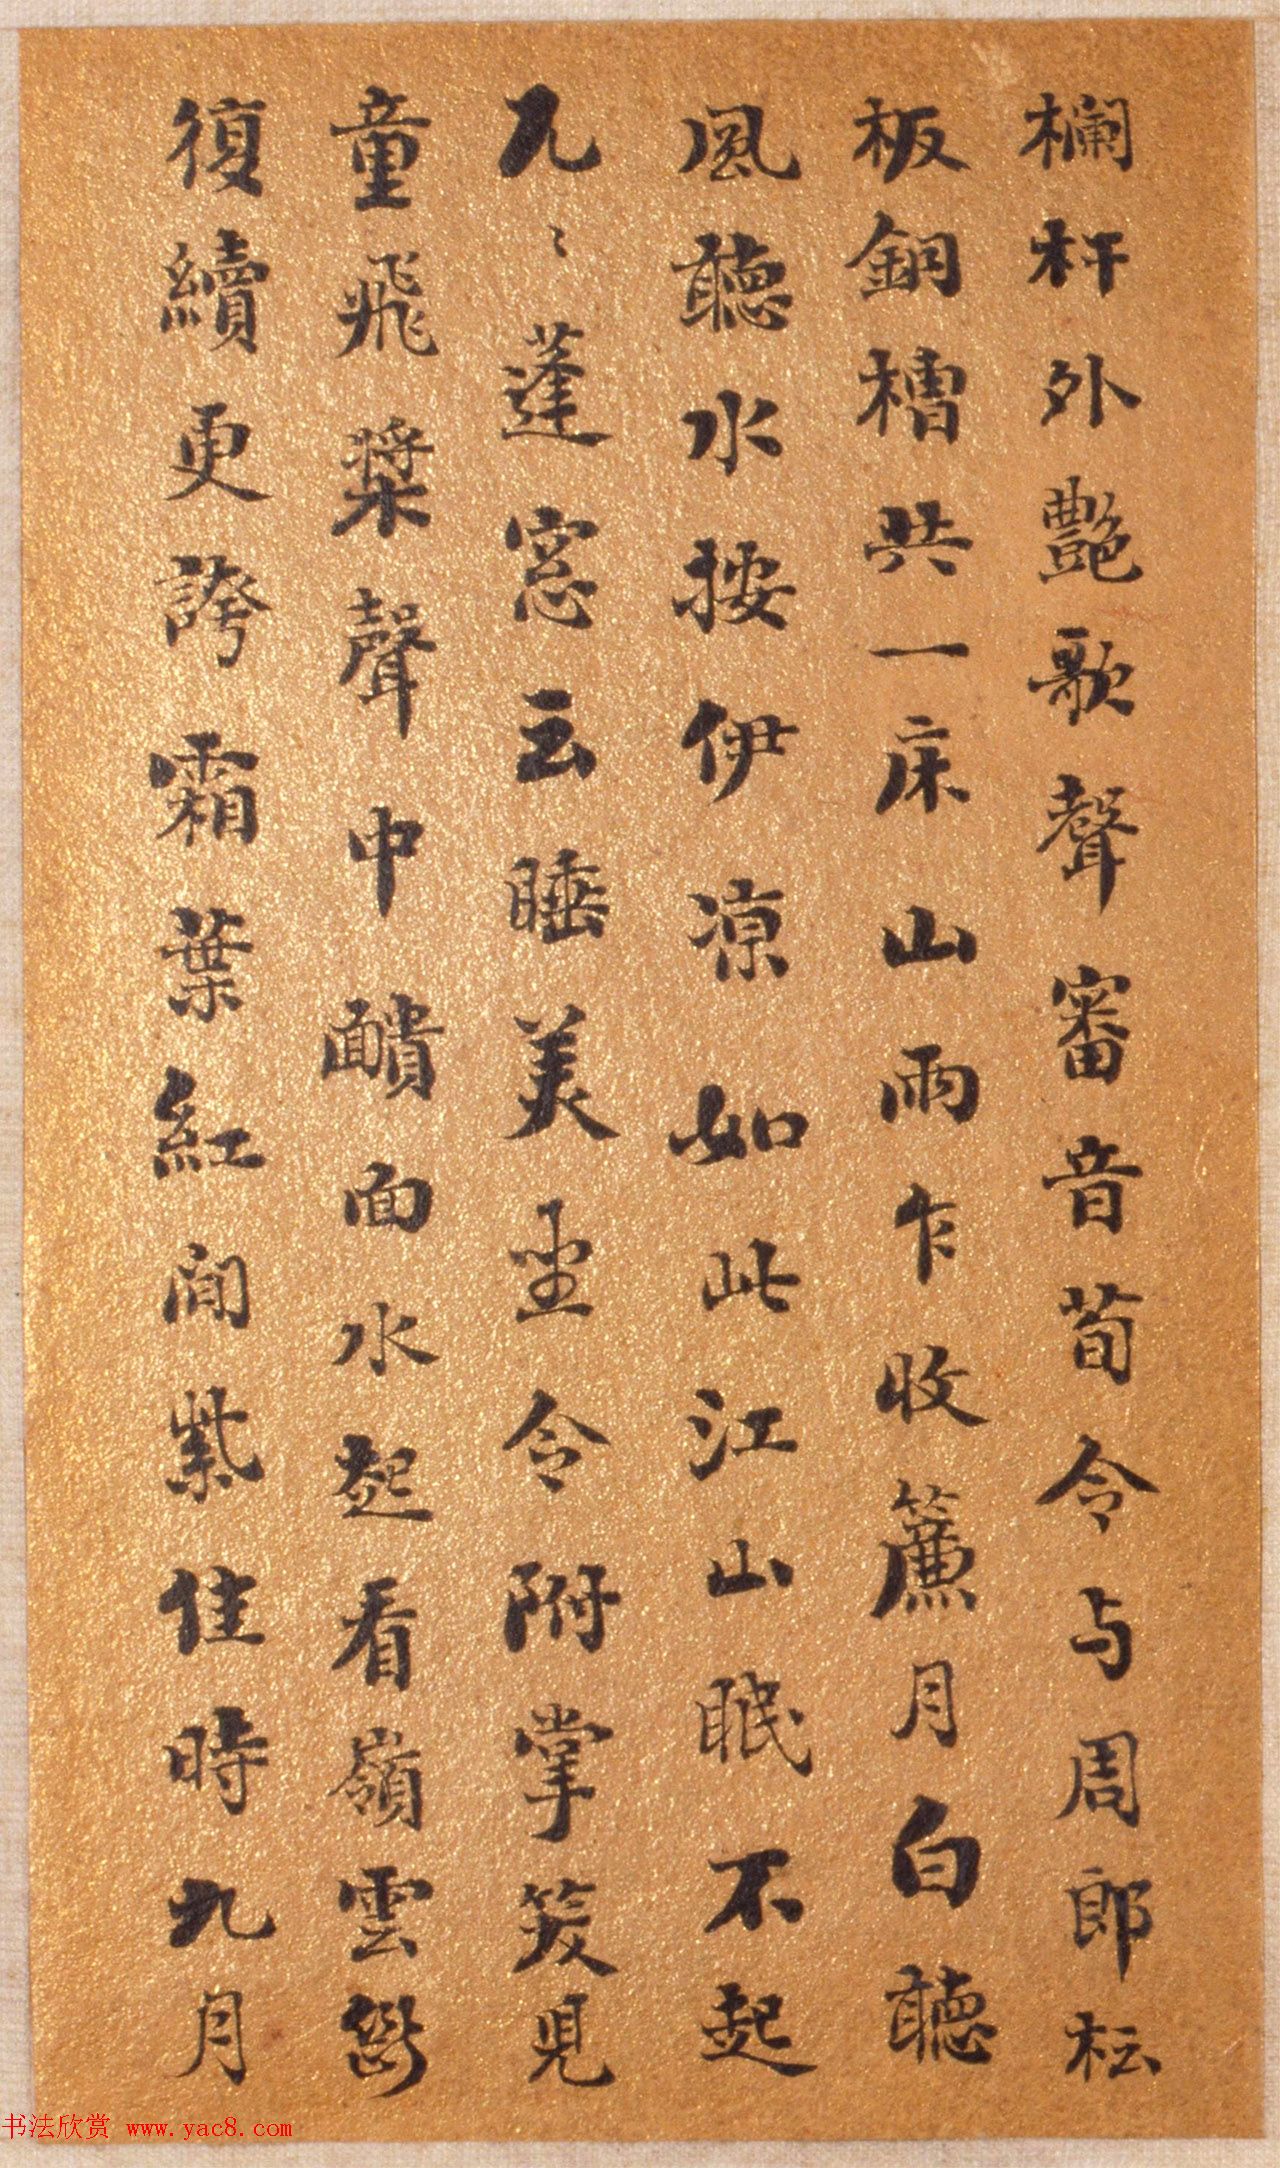 欄杆外艷歌聲審音荀令与周郎枟
板銅槽共一床山雨乍收簾月白聽
風聽水按伊凉如此江山眠不起
兀〻蓬窓云睡美坐令附掌笑児
童飛槳聲中靧面水起看嶺雲斷
復續更誇霜葉紅间紫佳時九月
书法欣赏 www.yac8.com